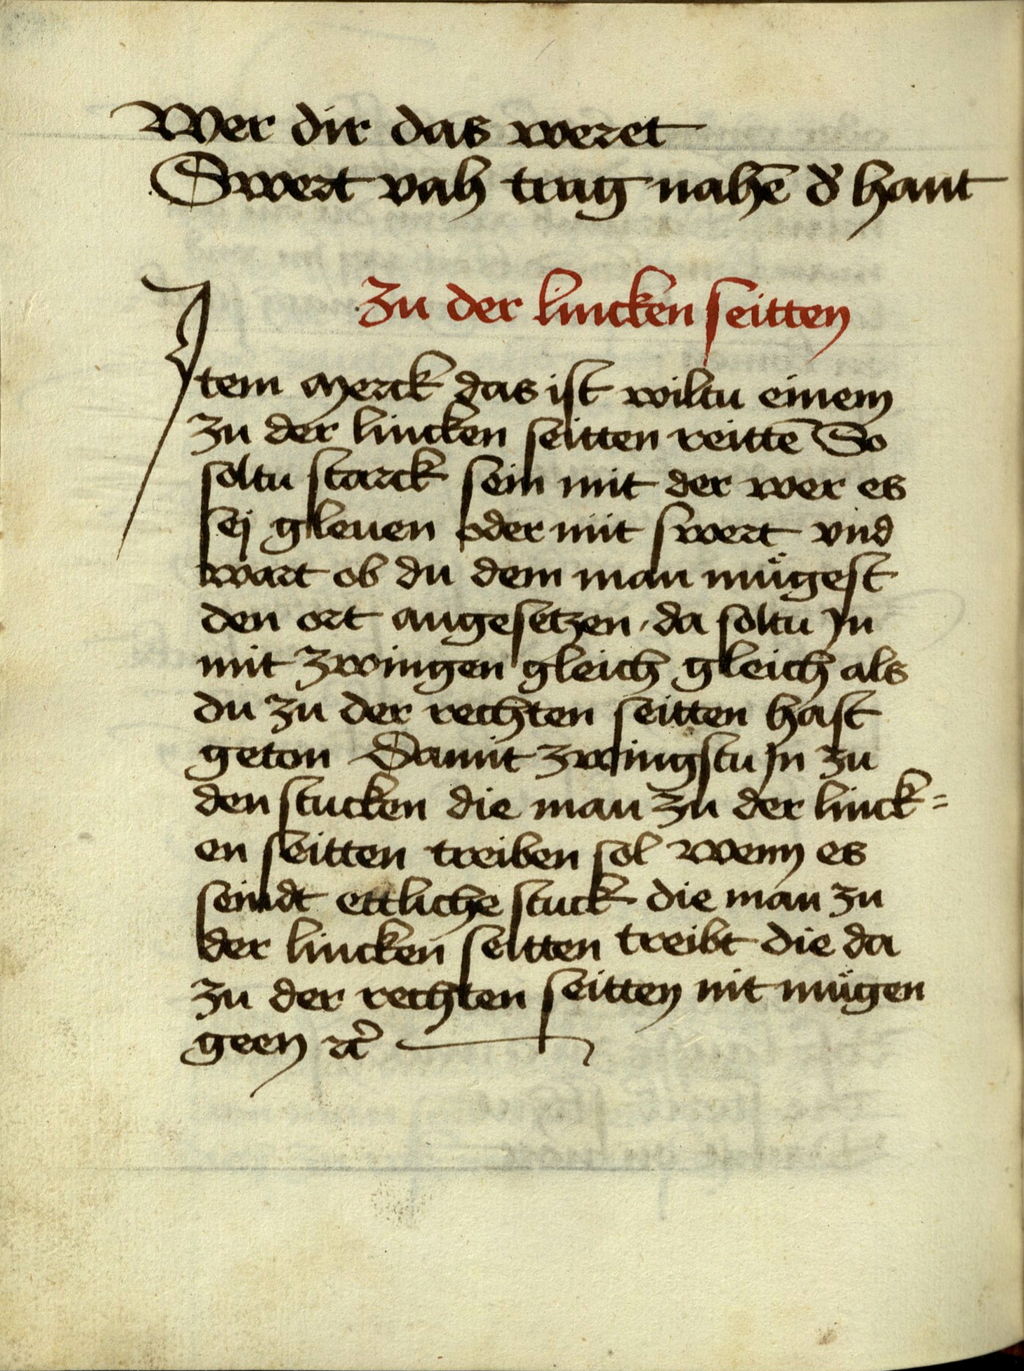 Wer dir das weret
Swert vah trag nahē d̕ hant
Zu der lincken seitten
Item Merck das ist wiltu einem
zu der lincken seitten reittē So
soltu starck sein mit der wer es
sej gleuen oder mit swert vnd
wart ob du dem man mu̇gest
den ort angesetzen / da soltu Jn
mit zwingen gleich gleich als
du zu der rechten seitten hast
geton Damit zwingstu Jn zu
den stucken die man zu der linck=
en seitten treiben sol Wenn es
seindt ettliche stuck die man zu
der lincken seitten treibt die da
zu der rechten seitten nit mügen
geen ꝛc̕